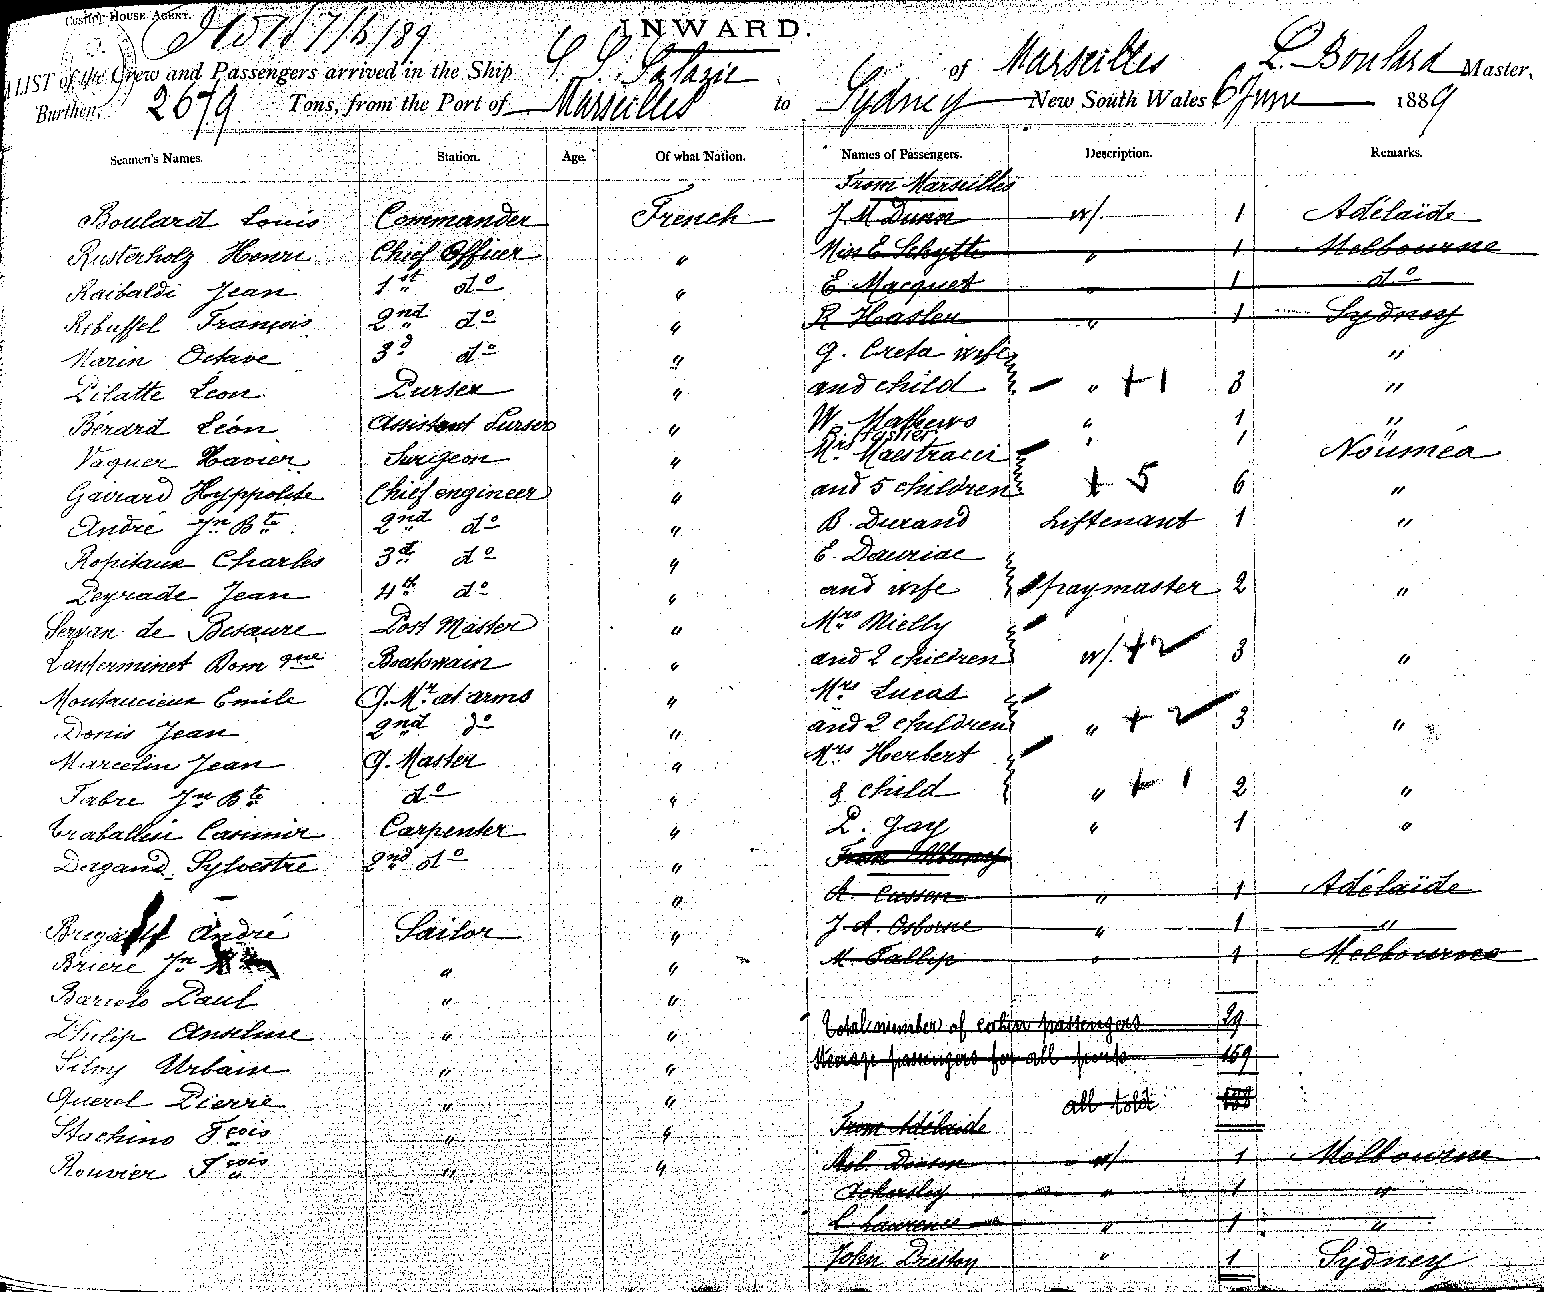 CUSTOM HOUSE AGENT.
7/6/89
INWARD.
A LIST of the Crew and Passengers arrived in the Ship S.S. Salazie of Marseilles L. Boulard Master,
Burthen, 2679 Tons, from the Port of Marseilles to Sydney New South Wales 6 June 1889
Seamen's Names. Station. Age. Of what Nation. Names of Passengers. Description. Remarks.
From Marseilles
Boulard Louis Commander French J M Dunn w/. 1 Adélaïde
Rusterholz Henri Chief Officer " Miss E Schytte " 1 Melbourne
Raibaldi Jean 1st do " E Macquet " 1 do
Rebuffel François 2nd do " R Haslen " 1 Sydney
Marin Octave 3d do " G. Creta wife "
Pilatte Léon Purser " and child " +1 3 "
Bérard Léon Assistant Purser " W. Mathews " 1 "
Vaquer Xavier Surgeon " Mrs Maestracci " 1 " Nouméa
Gairard Hyppolite Chief engineer " and 5 children + 5 6 "
André Jn Bte 2nd do " B. Durand Liftenant 1 "
Ropitaux Charles 3d do " E. Dauriac
Peyrade Jean 4th do " and wife paymaster 2 "
Servan de Bezaure Post Master " Mrs Nielly
Lanterminet Domque Boatswain " and 2 children w/. +2 3 "
Montaucieux Emile Q. Mr at arms " Mrs Lucas
Donis Jean 2nd do " and 2 children " + 2 3 "
Marcelin Jean Q. Master " Mrs Herbert
Fabre Jn Bte do " & child " + 1 2 "
Traballesi Casimir Carpenter " P. Gay " 1 "
Dagand Sylvestre 2nd do " From Albany
" A. Casson " 1 Adélaïde
André Sailor " J A. Osborne " 1 "
Briere Jn " " M. Fallip " 1 Melbourne
Bariolo Paul " "
Philip Anselme " " Total number of cabin passengers 29
Silvy Urbain " " Steerage passengers for all ports 159
Querel Pierre " " all told 188
Stachino Fçois " " From Adélaïde
Rouvier Fçois " " w/ 1 Melbourne
" 1 "
L Lawrence " 1 "
John Preston " 1 Sydney